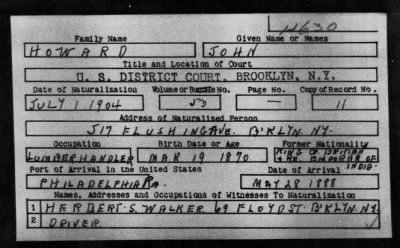 4630
Family Name Given Name or Names
HOWARD JOHN
Title and Location of Court
U. S. DISTRICT COURT, BROOKLYN, N.Y.
Date of Naturalization Volume or Bundle No. Page No. Copy of Record No.
JULY 1 1904 53 — 11
Address of Naturalized Person
517 FLUSHING AVE. B'KLYN. NY.
Occupation Birth Date or Age Former Nationality
LUMBER HANDLER MAR 19 1870 KING OF BRITIAN & IRE. EMPEROR OF INDIA.
Port of Arrival in the United States Date of Arrival
PHILADELPHIA PA. MAY 28 1888
Names, Addresses and Occupations of Witnesses To Naturalization
1 HERBERT S. WALKER 69 FLOYD ST. B'KLYN. NY.
2 DRIVER